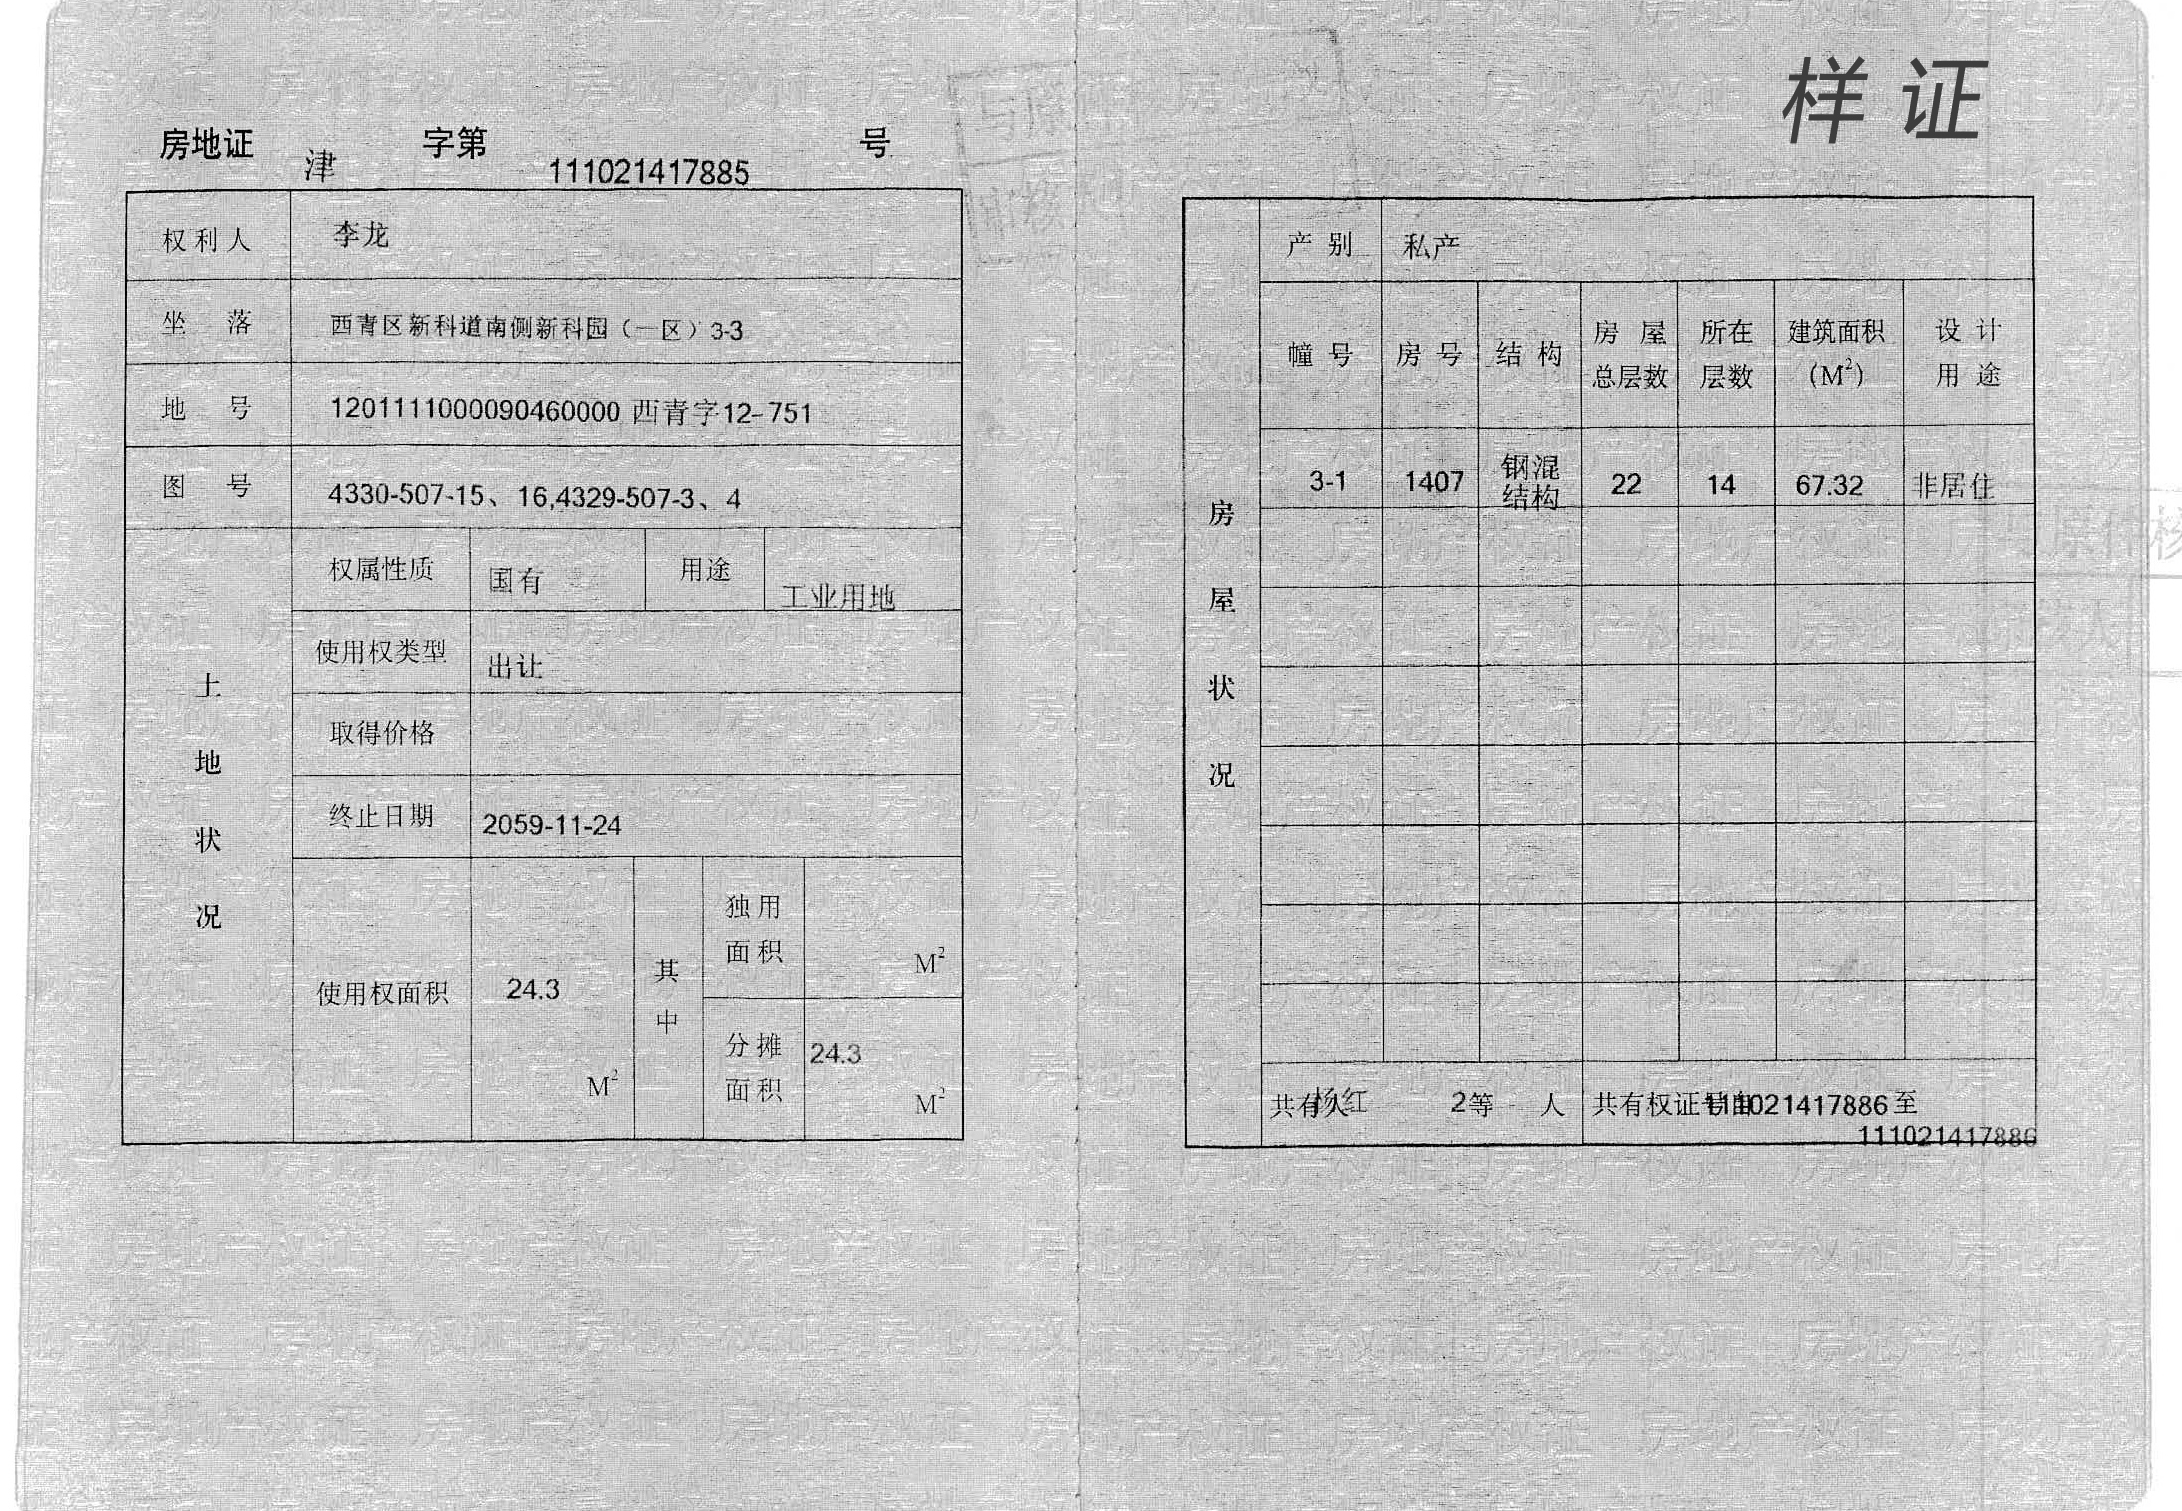 样 证
房地证 津 字第 111021417885 号
权利人 李龙
坐 落 西青区新科道南侧新科园（一区）3-3
地 号 1201111000090460000 西青字12-751
图 号 4330-507-15、16,4329-507-3、4
土地状况
权属性质 国有 用途 工业用地
使用权类型 出让
取得价格
终止日期 2059-11-24
使用权面积 24.3 M²
其中
独用面积 M²
分摊面积 24.3 M²
房屋状况
产 别 私产
幢 号 房 号 结 构 房 屋总层数 所在层数 建筑面积(M²) 设 计用 途
3-1 1407 钢混结构 22 14 67.32 非居住
共有人 杨红 2等 人 共有权证号自 111021417886 至
111021417886